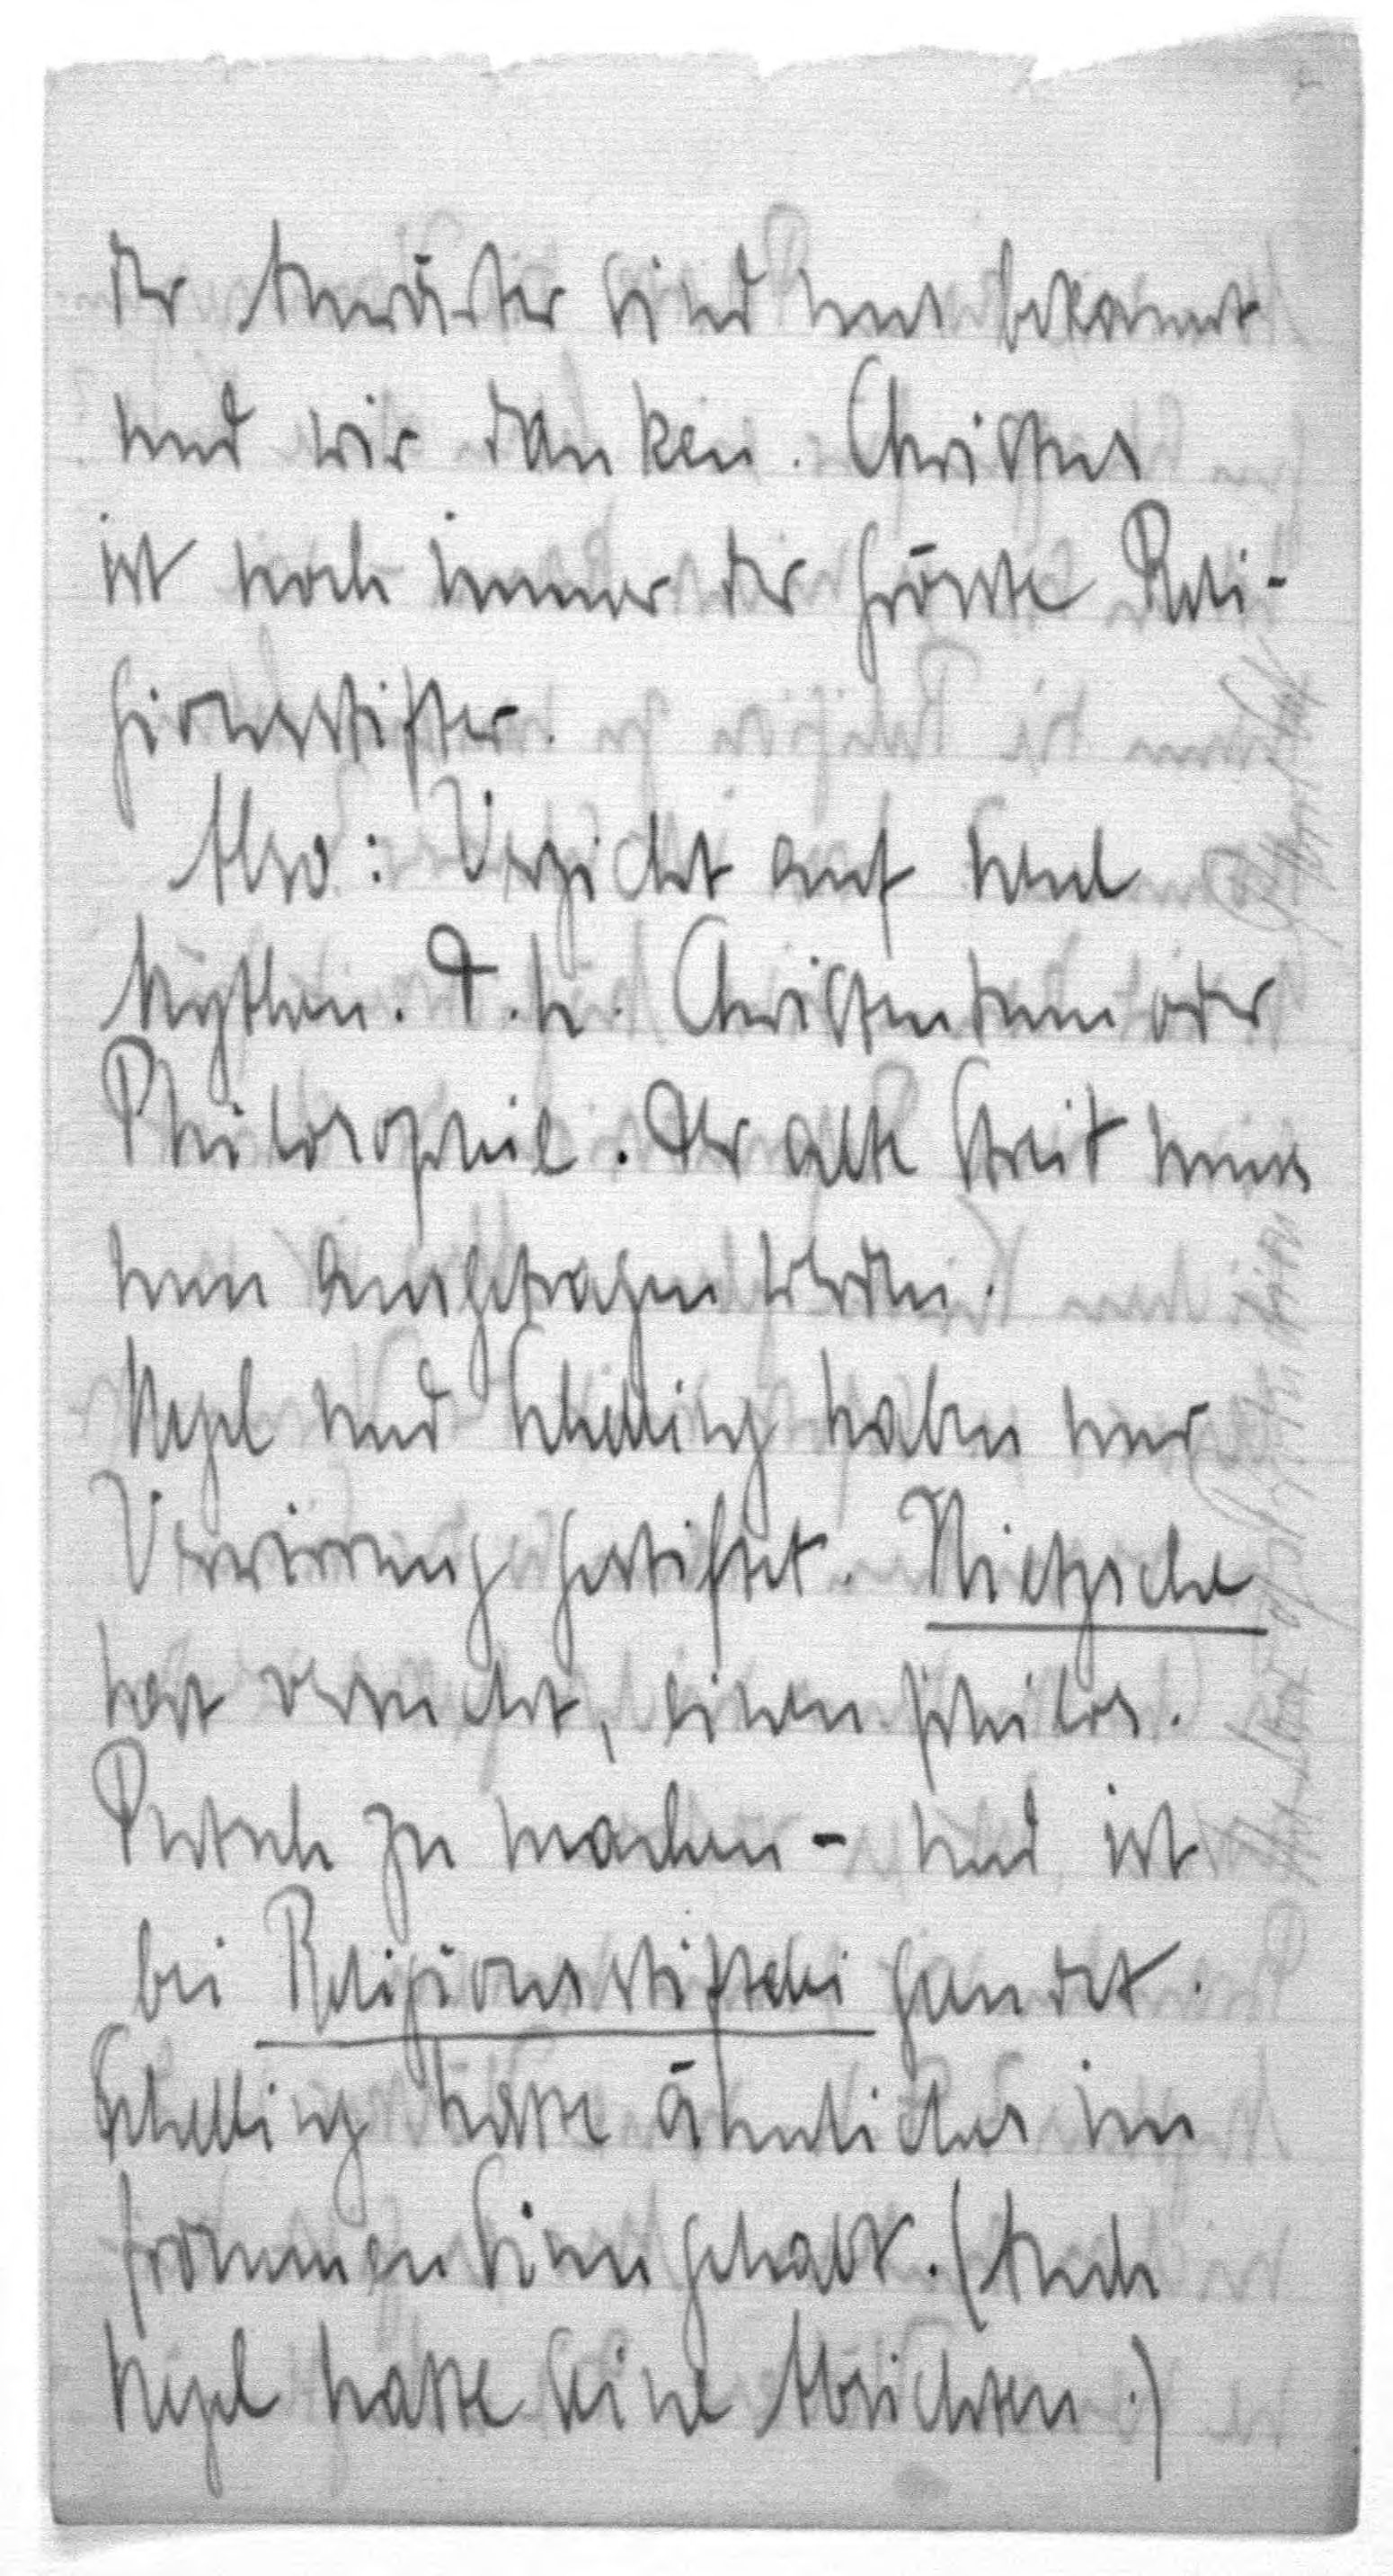 der Anwärter sind uns bekannt
und wir danken. Christus
ist noch immer der grösste Reli-
gionsstifter.
Also: Verzicht auf neue
Mythen. D.h. Christentum oder
Philosophie. Der alte Streit muss
nun ausgetragen werden.
Hegel und Schelling haben nur
Verwirrung gestiftet. Nietzsche
hat versucht, einen philos.
Putsch zu machen - und ist
bei Religionsstifterei gelandet.
Schelling hatte ähnliches im
frommen Sinn gehabt. (Auch
Hegel hatte seine Absichten.)